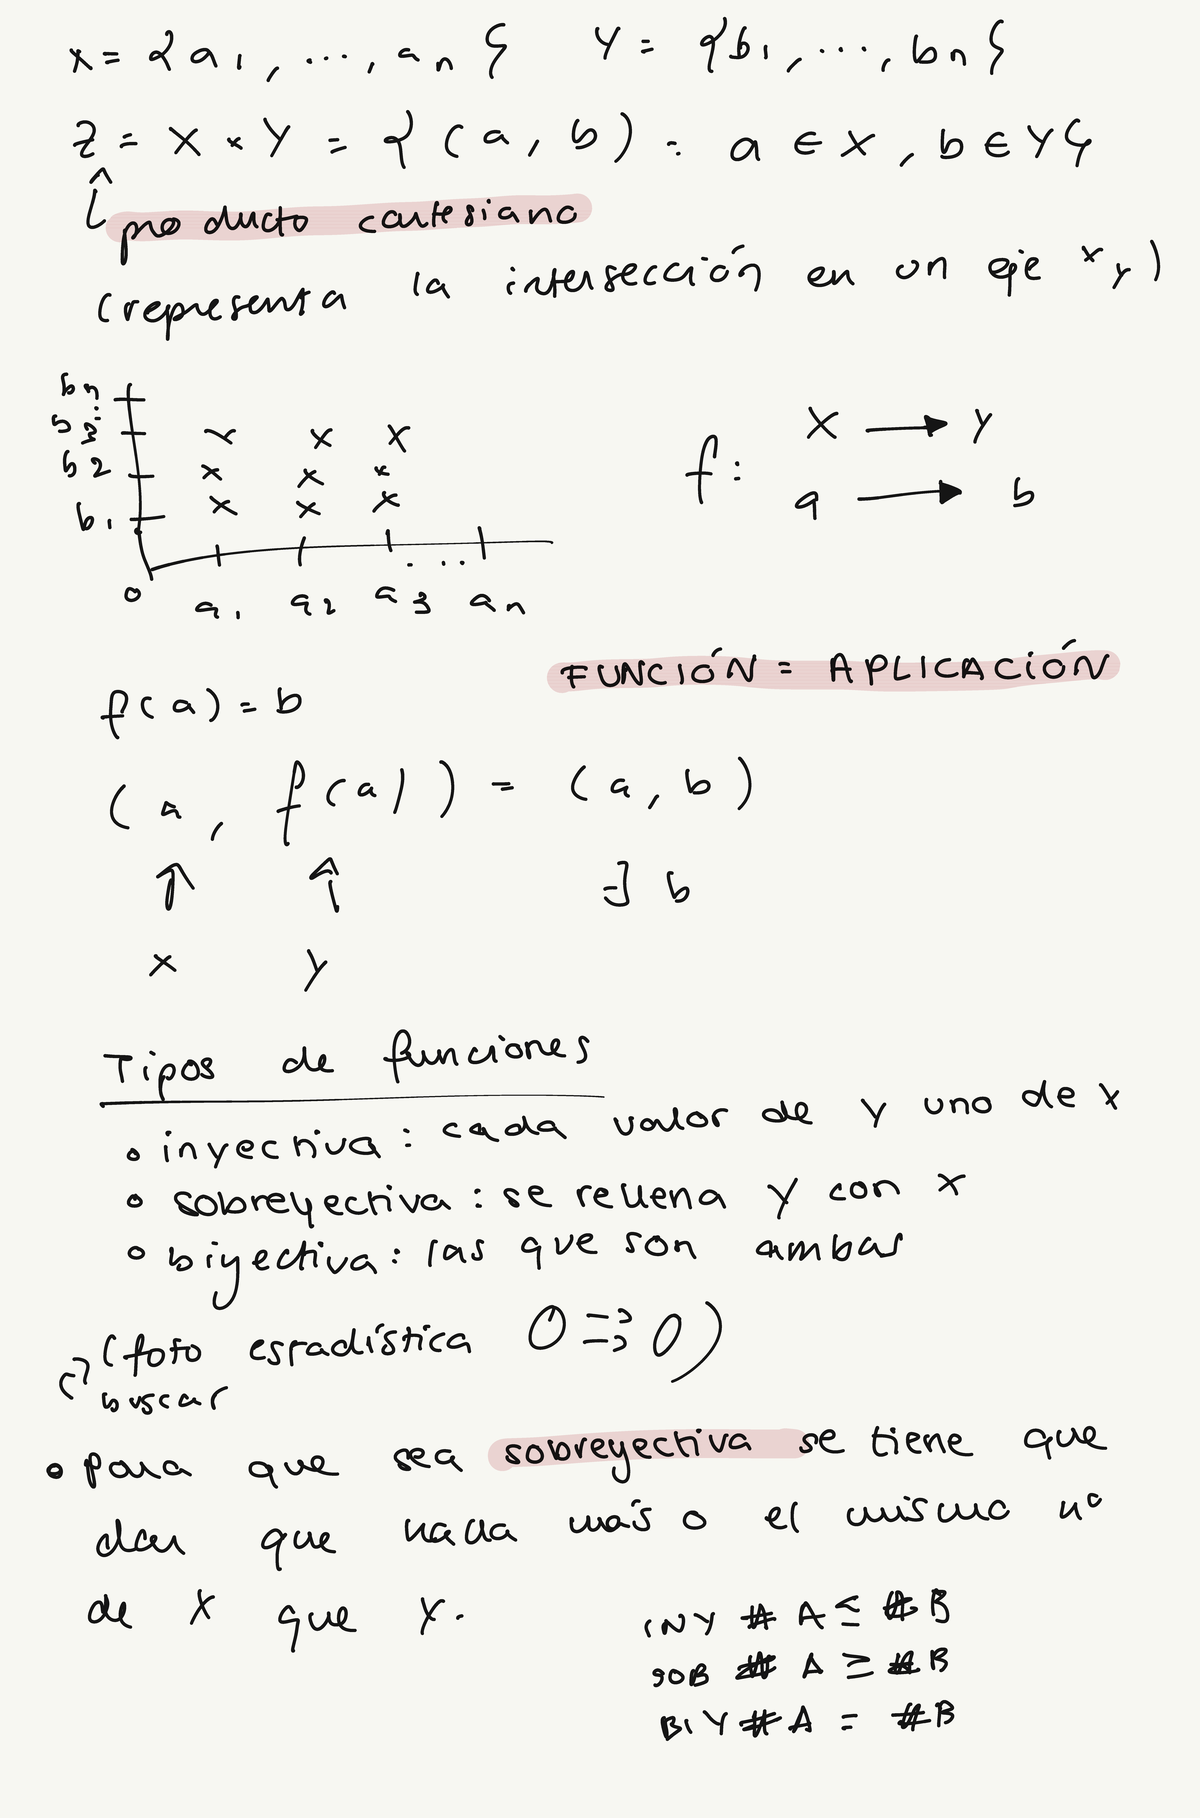 x = {a1, ..., an}   Y = {b1, ..., bn}
Z = X × Y = {(a, b) : a ∈ X, b ∈ Y}
producto cartesiano
(representa la intersección en un eje x y)
bn
b3
b2
b1
0 a1 a2 a3 ... an
f: X → Y
a → b
FUNCIÓN = APLICACIÓN
f(a) = b
(a, f(a)) = (a, b)
∃ b
x y
Tipos de funciones
• inyectiva: cada valor de y uno de x
• sobreyectiva: se rellena y con x
• biyectiva: las que son ambas
(foto estadística 0 => 0)
buscar
• para que sea sobreyectiva se tiene que
dar que haya más o el mismo nº
de X que Y.
INY # A ≤ # B
SOB # A ≥ # B
BIY # A = # B